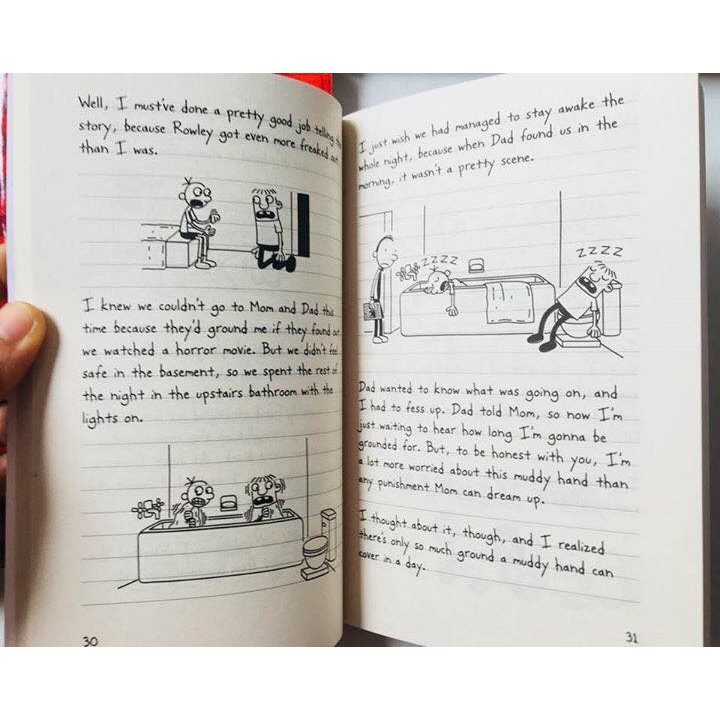 Well, I must've done a pretty good job telling
story, because Rowley got even more freaked out
than I was.
I knew we couldn't go to Mom and Dad this
time because they'd ground me if they found out
we watched a horror movie. But we didn't feel
safe in the basement, so we spent the rest of
the night in the upstairs bathroom with the
lights on.
30
I just wish we had managed to stay awake the
whole night, because when Dad found us in the
morning, it wasn't a pretty scene.
ZZZZ
ZZZZ
Dad wanted to know what was going on, and
I had to fess up. Dad told Mom, so now I'm
just waiting to hear how long I'm gonna be
grounded for. But, to be honest with you, I'm
a lot more worried about this muddy hand than
any punishment Mom can dream up.
I thought about it, though, and I realized
there's only so much ground a muddy hand can
cover in a day.
31